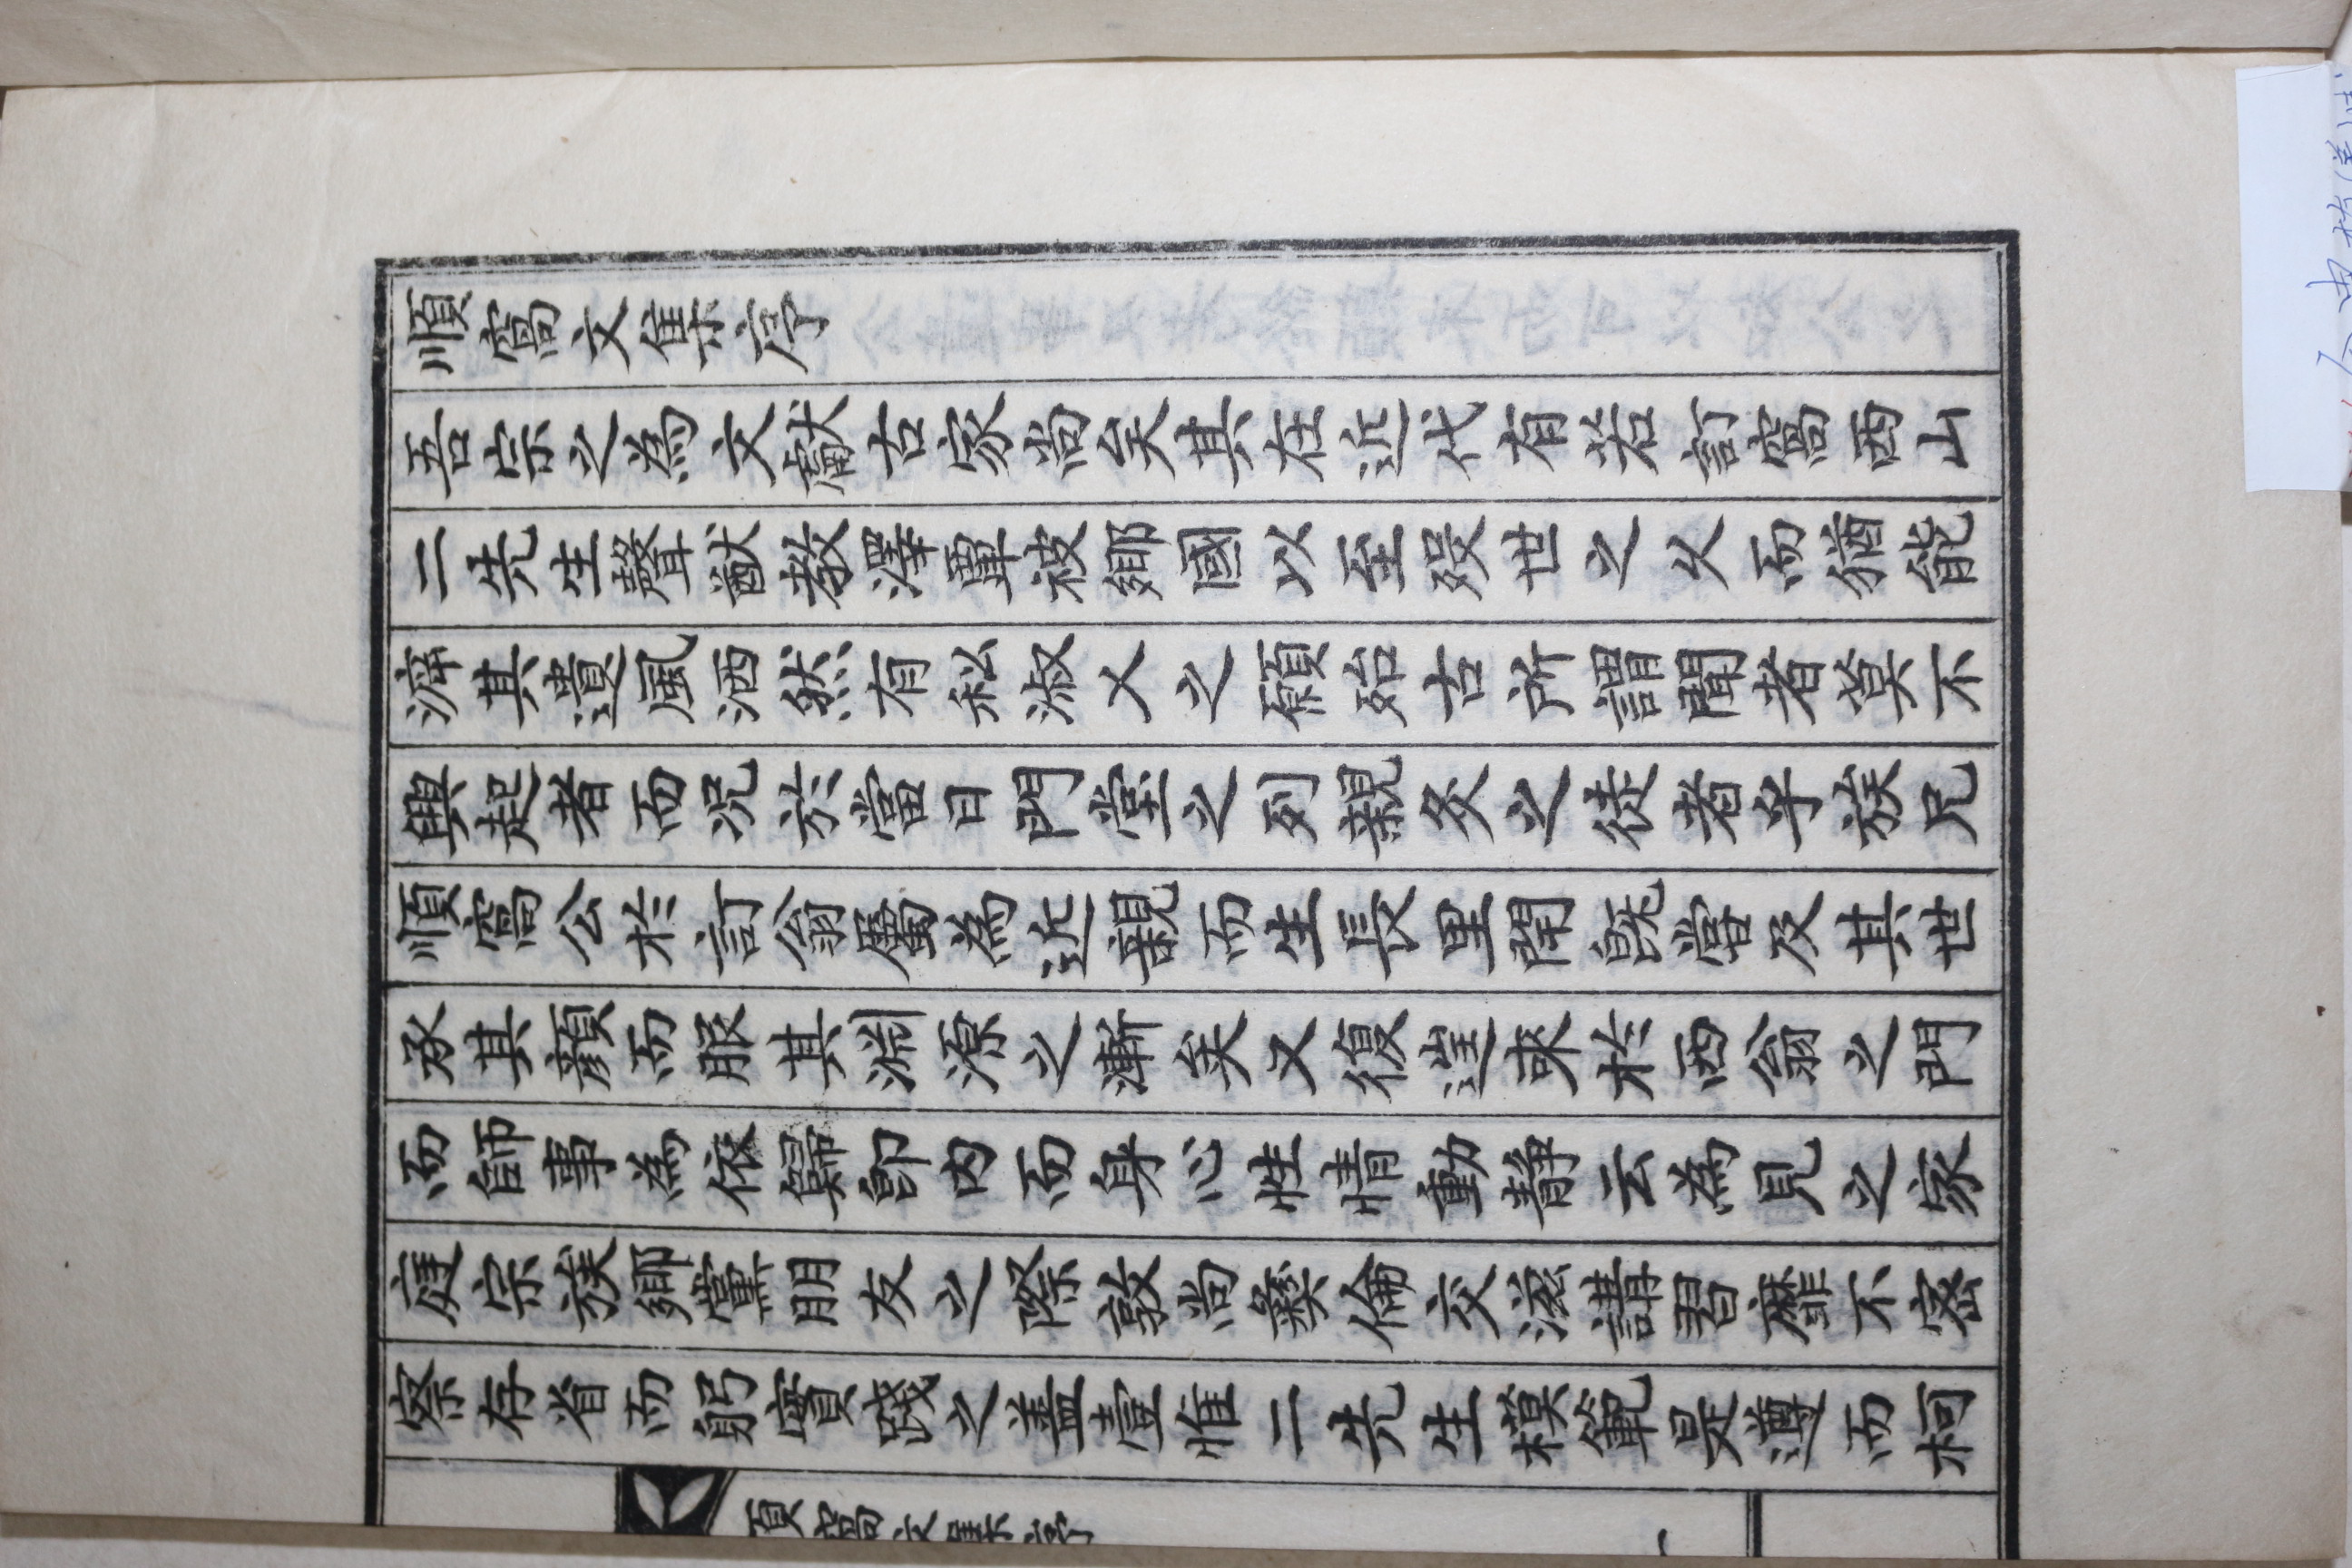 順窩文集序
吾宗之爲文獻古家尚矣其在近代有若訂窩西山
二先生聲猷敎澤覃被鄕國以至歿世之久而猶能
滓其遺風洒然有私淑乂之願殆古所謂聞者莫不
興起者而況於當日門堂之列親炙之徒者乎族兄
順窩公於訂翁屬爲近親而生長里閈旣嘗及其世
承其顔而服其淵源之漸矣又復遊來於西翁之門
而師事爲依歸卽內而身心性情動靜云爲見之家
庭宗族鄕黨朋友之際敦尚彜倫交滋講習靡不密
察存省而躬實踐之盖壹惟二先生模範是遵而柯
順窩文集序
一